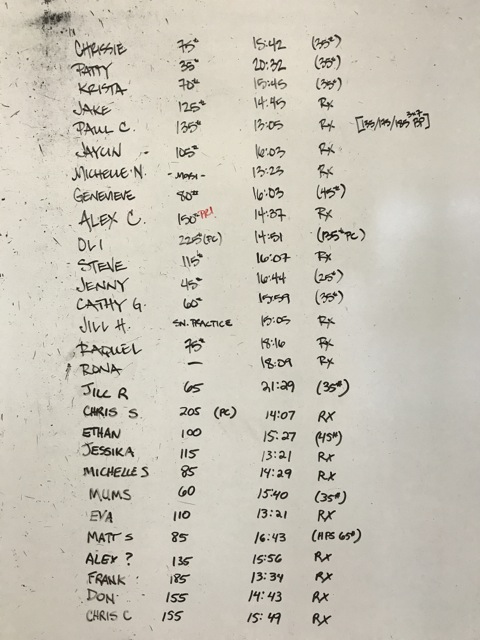 CHRISSIE 75# 15:42 (35#)
PATTY 35# 20:32 (35#)
KRISTA 70# 15:45 (35#)
JAKE 125# 14:45 RX
PAUL C. 135# 13:05 RX [135/175/185 3x7 BP]
JAYLIN 105# 16:03 RX
MICHELLE N. 13:23 RX
GENEVIEVE 80# 16:03 (45#)
ALEX C. 150# PR! 14:37 RX
OLI 225# (PC) 14:51 (135# PC)
STEVE 115# 16:07 RX
JENNY 45# 16:44 (25#)
CATHY G. 60# 15:59 (35#)
JILL H. SN. PRACTICE 15:05 RX
RAQUEL 75# 18:16 RX
RONA — 18:09 RX
JILL R 65 21:29 (35#)
CHRIS S 205 (PC) 14:07 RX
ETHAN 100 15:27 (45#)
JESSIKA 115 13:21 RX
MICHELLE S 85 14:29 RX
MUMS 60 15:40 (35#)
EVA 110 13:21 RX
MATT S 85 16:43 (HPS 65#)
ALEX ? 135 15:56 RX
FRANK 185 13:34 RX
DON 155 14:43 RX
CHRIS C 155 15:49 RX